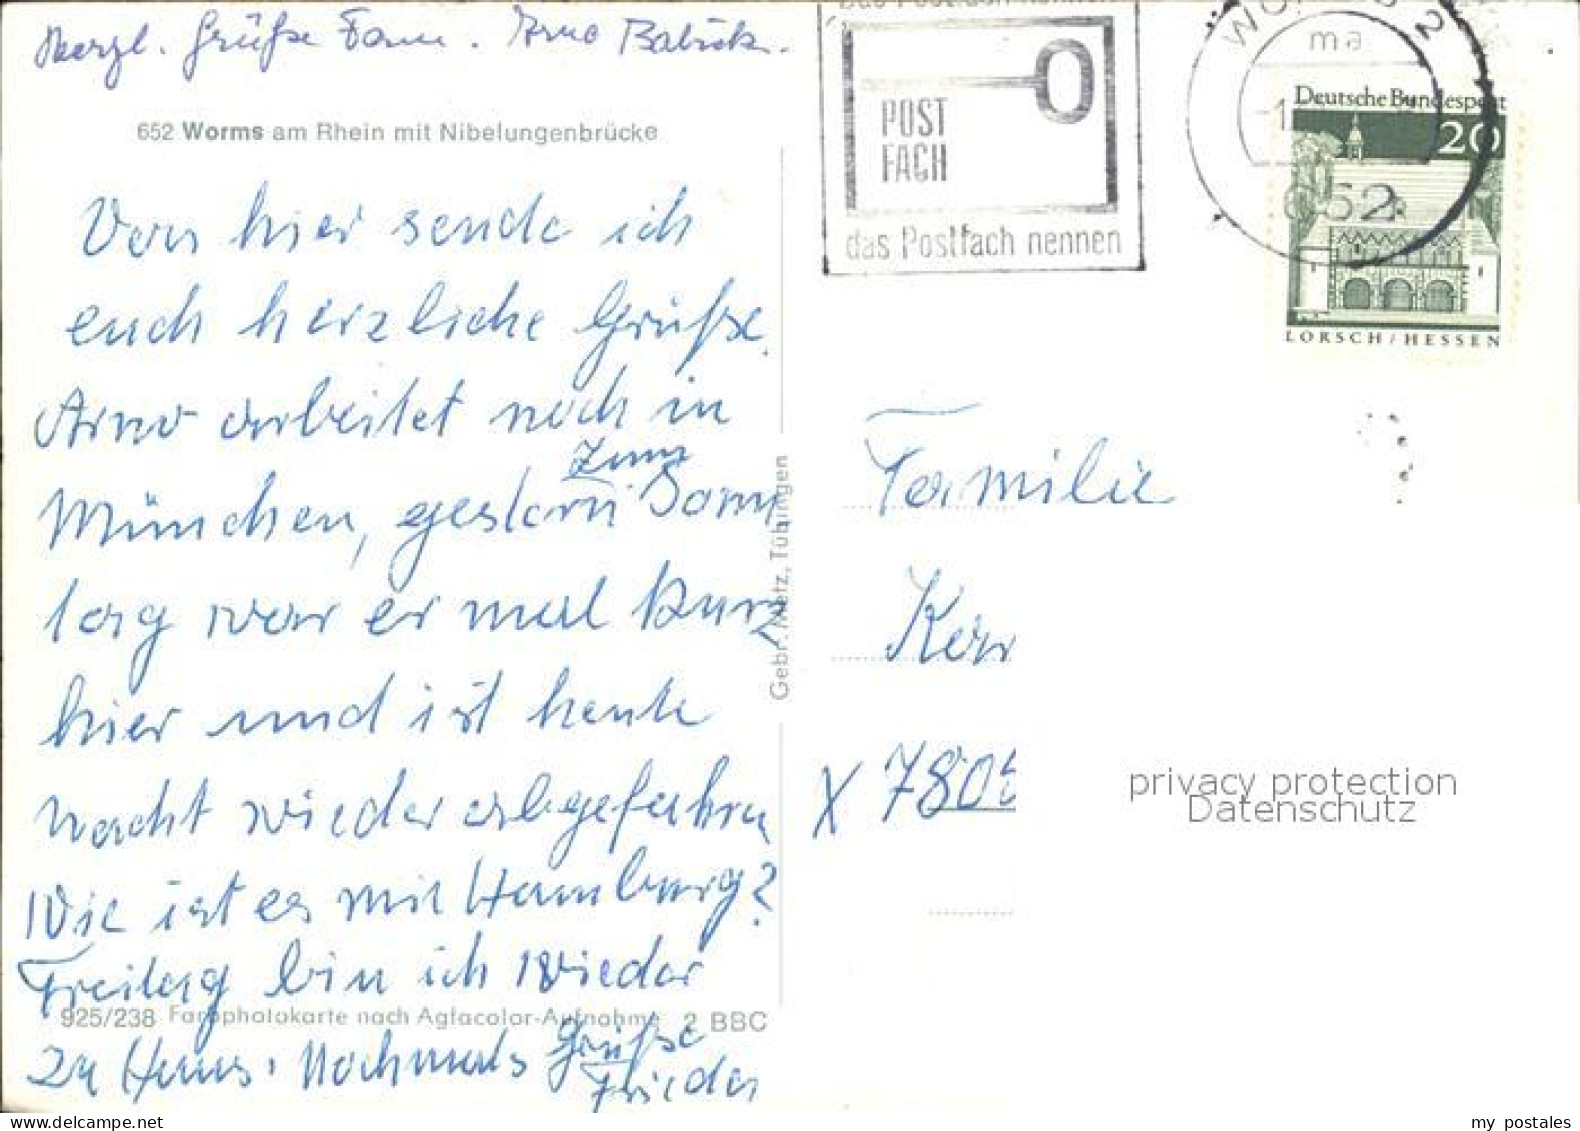 Herzl. Grüße Fam. Arno Babick.
652 Worms am Rhein mit Nibelungenbrücke
Von hier sende ich
euch herzliche Grüße.
Arno arbeitet noch in
zum
München, gestern Sonn
tag war er mal kurz
hier und ist heute
nacht wieder abgefahren
Wie ist es mit Hamburg?
Freitag bin ich wieder
925/238 Farbphotokarte nach Agfacolor-Aufnahme 2 BBC
zu Haus. Nochmals Grüße
Frieder
Gebr. Metz, Tübingen
POST
FACH
das Postfach nennen
WORMS 2
ma
-1
652
Deutsche Bundespost
20
LORSCH/HESSEN
Familie
Kern
X 7805
privacy protection
Datenschutz
my postales